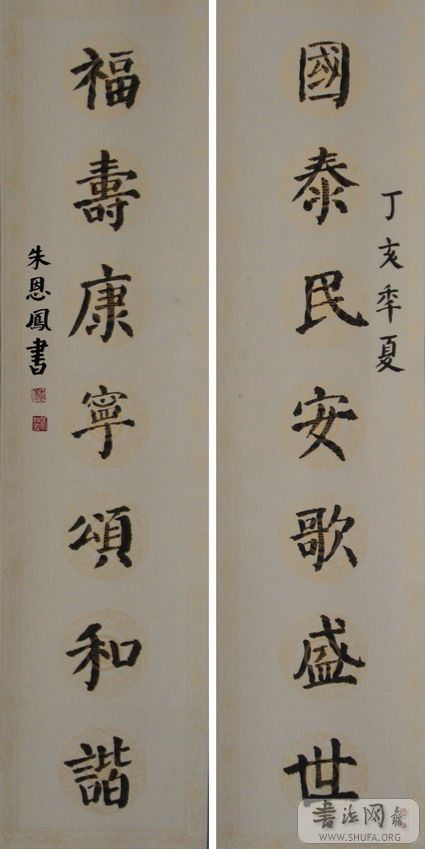 國泰民安歌盛世
丁亥季夏
福壽康寧頌和諧
朱恩鳳書
書法网
WWW.SHUFA.ORG